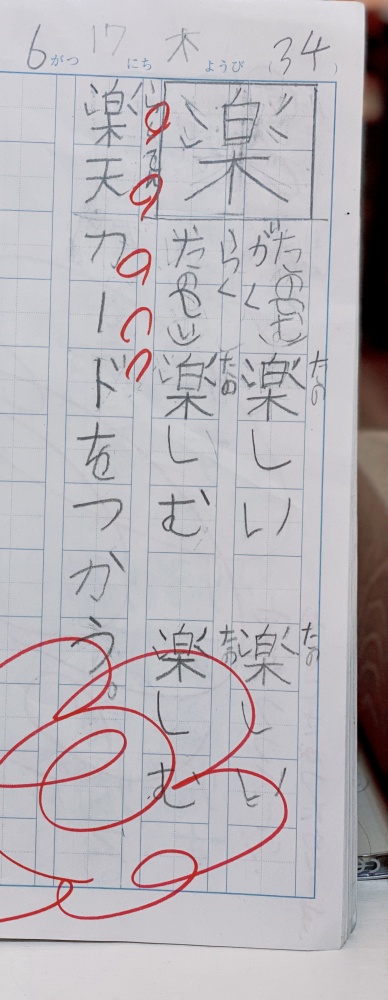 6がつ 17にち 木ようび (34)
楽
がく らく
たの(しむ) たの(しい)
楽しい 楽しい
楽しむ 楽しむ
楽天カードをつかう。